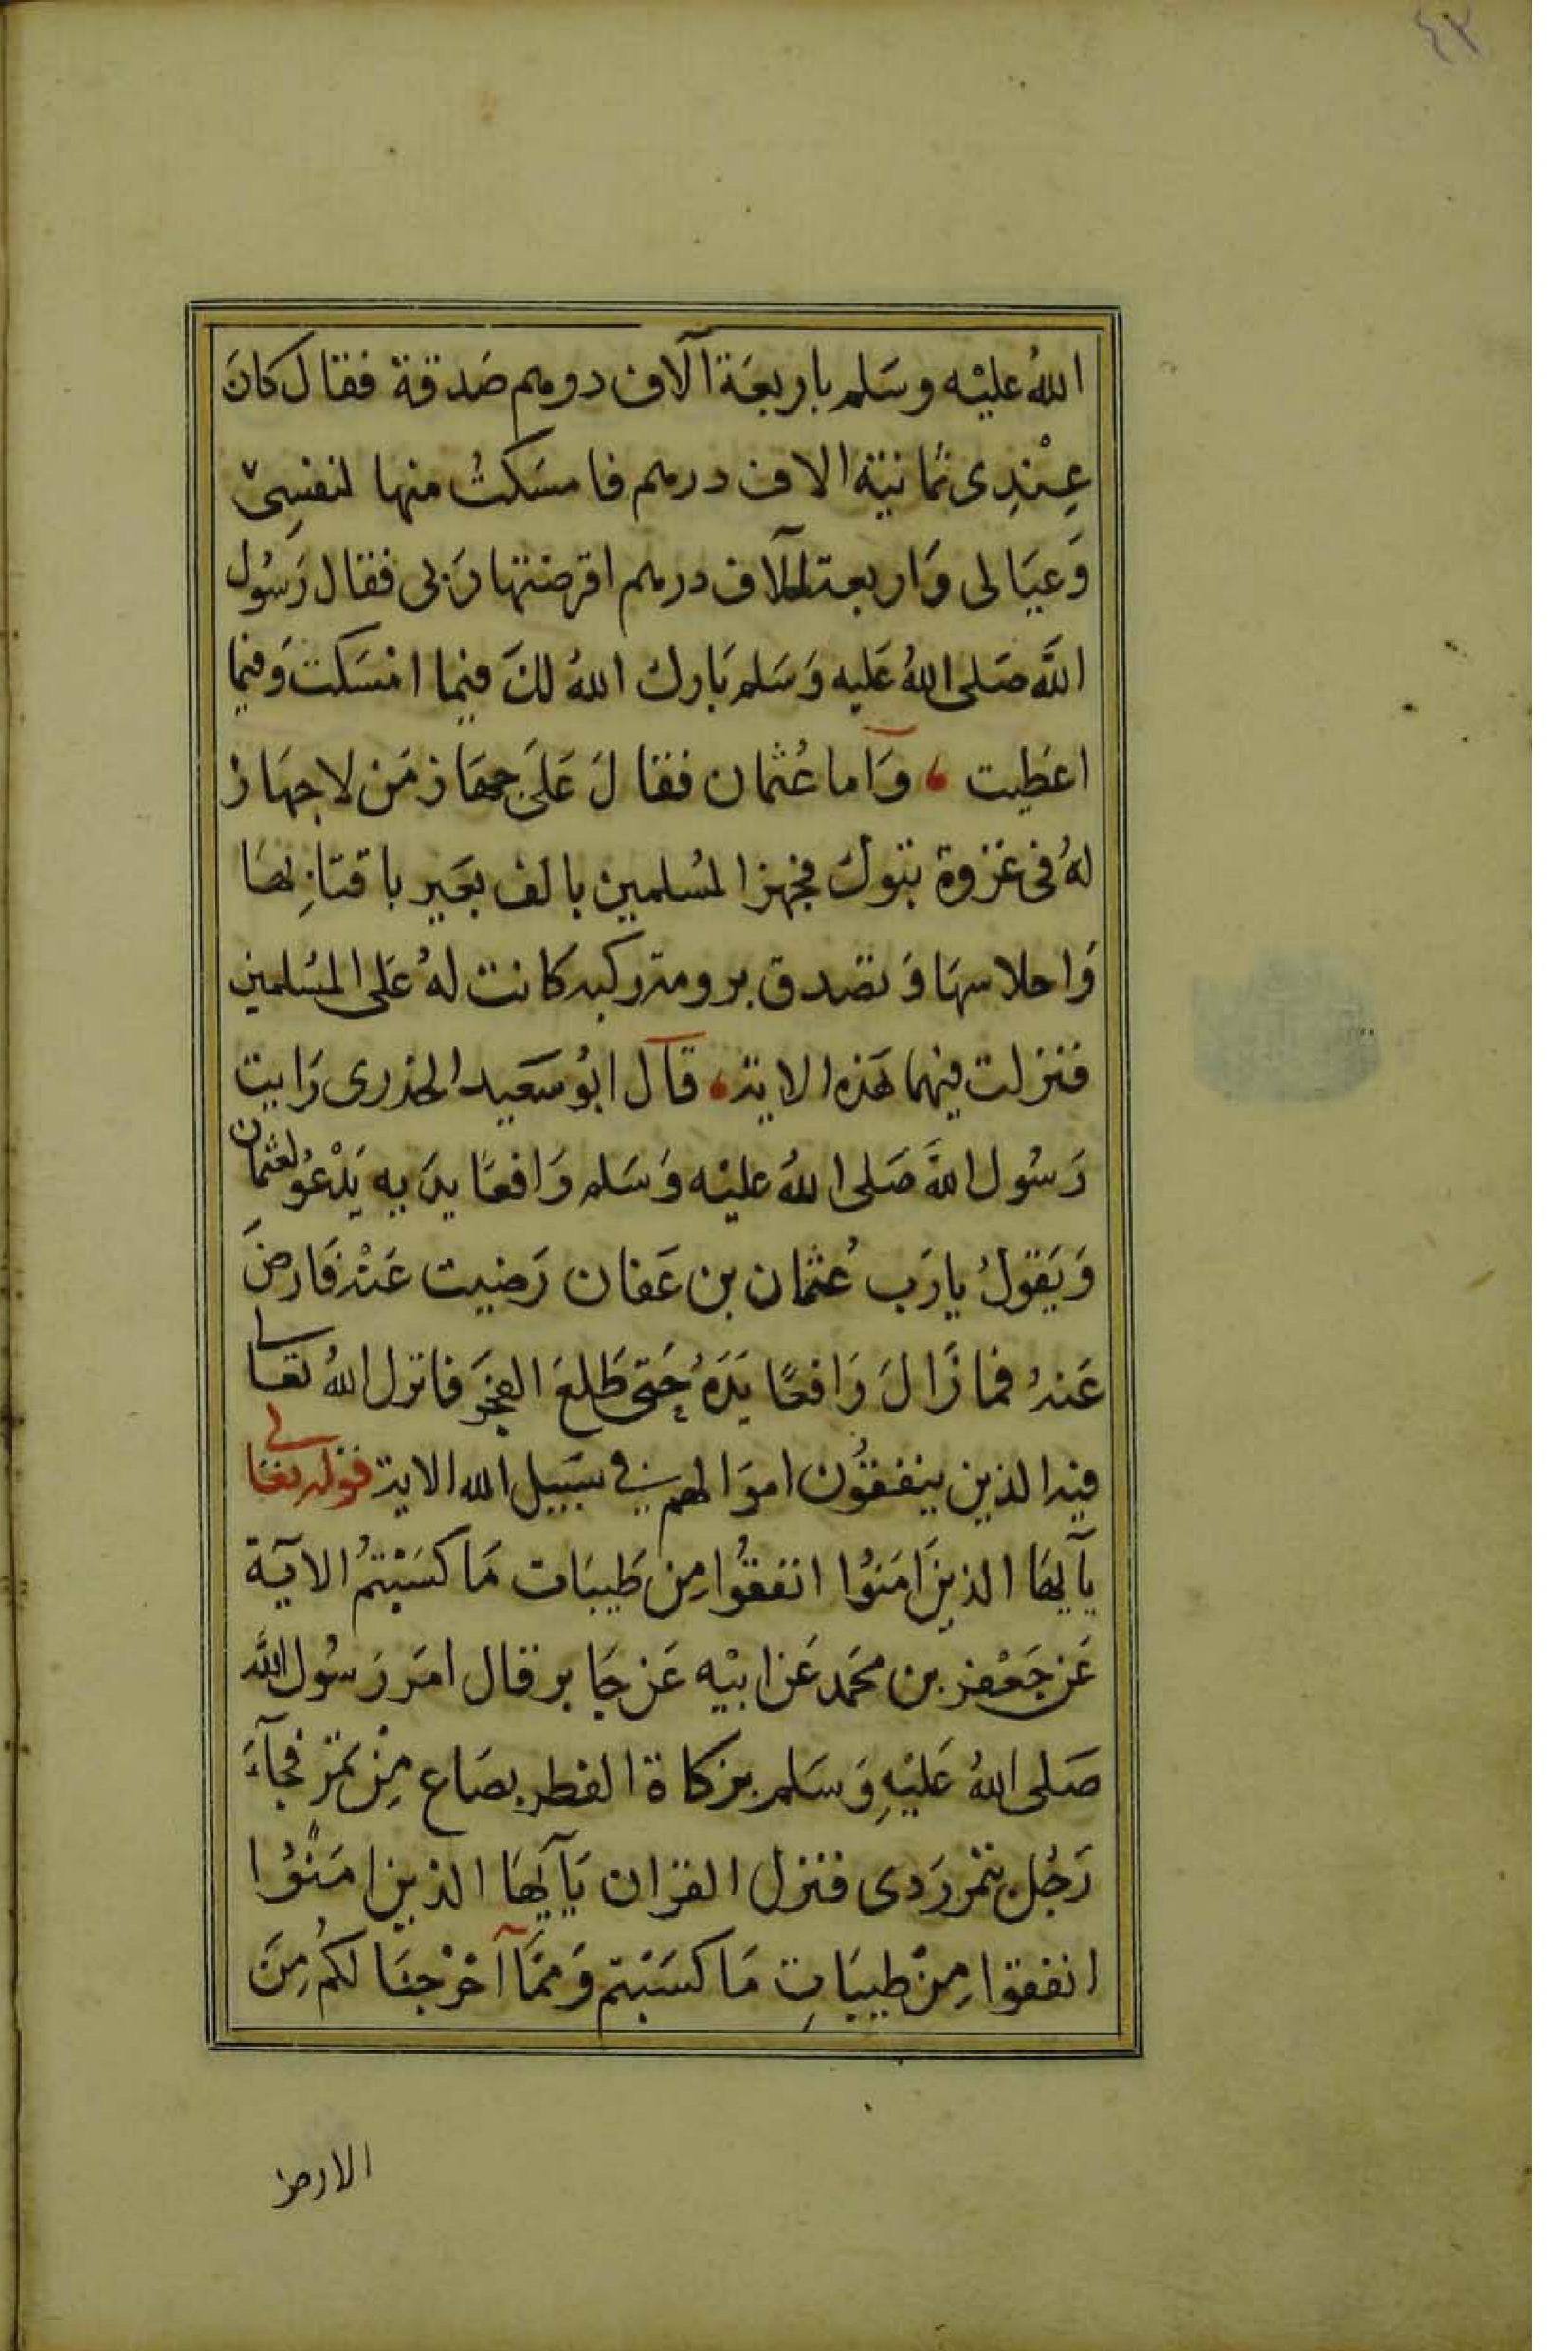 ٤٢
الله عليْه وسَلم باربعَة آلاف درهم صَدقة فقال كانَ
عِنْدِى ثمانية الاف درهم فامسَكتُ منها لنفسِى
وَعيَالى وَاربعة الآف درهم اقرضتها رَبى فقال رَسُول
اللَّه صَلى اللهُ عَليه وَسَلم بَارك اللهُ لكَ فيما امْسَكت وَفيما
اعَطيت ، وَآما عُثمان فقالَ عَلَىَ جهَاز مَن لا جهَازَ
لهُ فى غزوة تبوك فجهز المُسلمين بالف بعَير باقتابِهَا
وَاحلاسهَا وَتصَدق برومة ركية كانت لهُ عَلى المسُلمين
فنزلت فيهما هَذه الاية ، قآل ابوُ سَعيد الخدرى رَايت
رَسُول اللَّه صَلى اللهُ عليْه وَسَلم رَافعًا يدَيه يَدْعُو لعثمان
وَيَقولُ يارَب عُثمان بن عَفان رَضيت عَنْه فَارضَ
عَنهُ فما زَالَ رَافعًا يَدَهُ حَتى طَلعَ الفجَر فانزل اللهُ تعَالى
فيه الذين ينفقوُن اموَالهم فى سَبيل الله الاية قوله تعالى
يآ ايهَا الذينَ امَنوُا انفقوُا مِن طَيبَات مَا كسَبْتمُ الآية
عَن جَعْفر بن محَمد عَن ابيْه عَن جَابر قال امَر رَسُول اللَّه
صَلى اللهُ عَليْهِ وَسَلم بزكاة الفطر بصَاع مِنْ تمَر فجآءَ
رَجُل بتمر رَدى فنزل القرَان يَآ ايهَا الذين امَنوُا
انفقوا مِنْ طيبَاتِ مَا كسَبْتم وَممَّا آخْرَجنَا لكمُ مِنَ
الارض